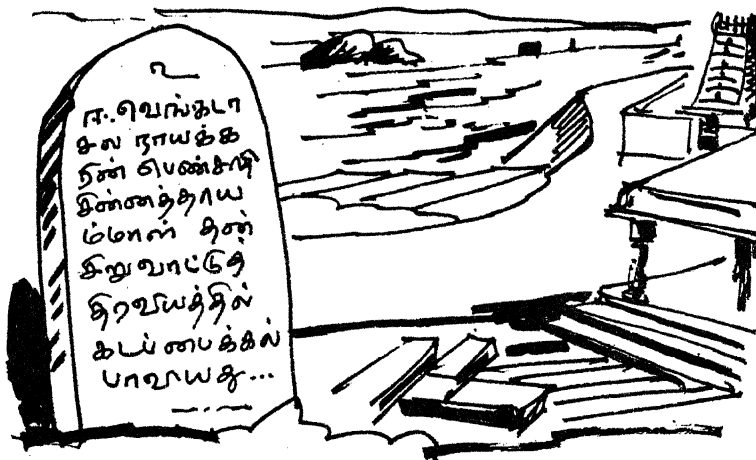 உ
ஈ. வெங்கடா
சல நாயக்க
நின் பெண்சாதி
சின்னத்தாய
ம்மாள் தன்
சிறுவாட்டுத்
திரவியத்தில்
கடப்பைக்கல்
பாவியது...